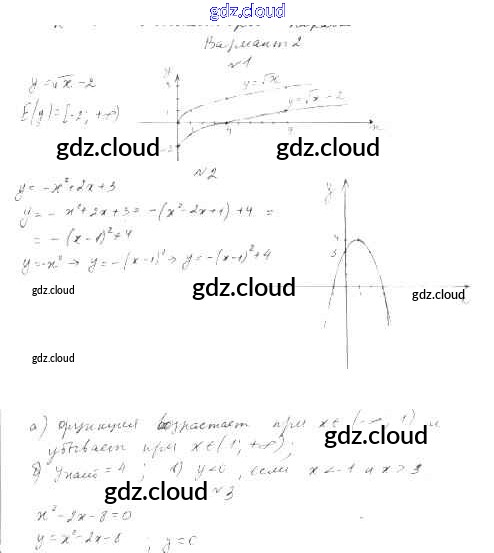 gdz.cloud
Вариант 2
№1
y = √x - 2
E(y) = [-2; +∞)
y
y = √x
y = √x - 2
1
4
9
x
-2
gdz.cloud gdz.cloud
№2
y = -x² + 2x + 3
y = -x² + 2x + 3 = -(x² - 2x + 1) + 4 =
= -(x - 1)² + 4
y = -x² → y = -(x - 1)² → y = -(x - 1)² + 4
y
4
3
1
gdz.cloud gdz.cloud gdz.cloud
gdz.cloud
а) функция возрастает при x ∈ (-∞, 1) и
убывает при x ∈ (1; +∞);
gdz.cloud
б) y наиб = 4; в) y < 0, если x < -1 и x > 3
gdz.cloud
№3
x² - 2x - 8 = 0
y = x² - 2x - 8 ; y = 0
gdz.cloud